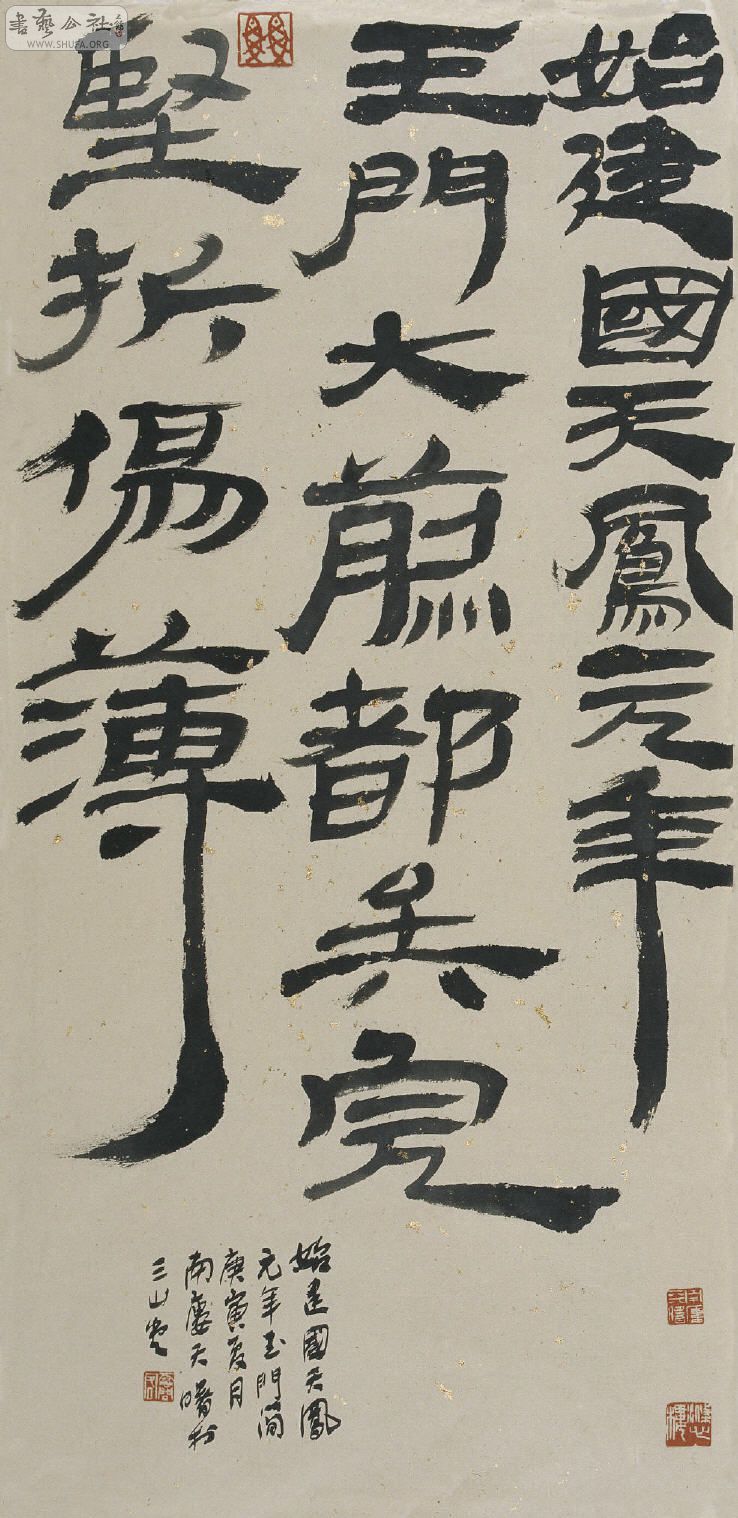 書藝公社
WWW.SHUFA.ORG
始建國天鳳元年
玉門大煎都兵完
堅折傷薄
始建國天鳳
元年玉門簡
庚寅夏月
南廔天曙於
三山